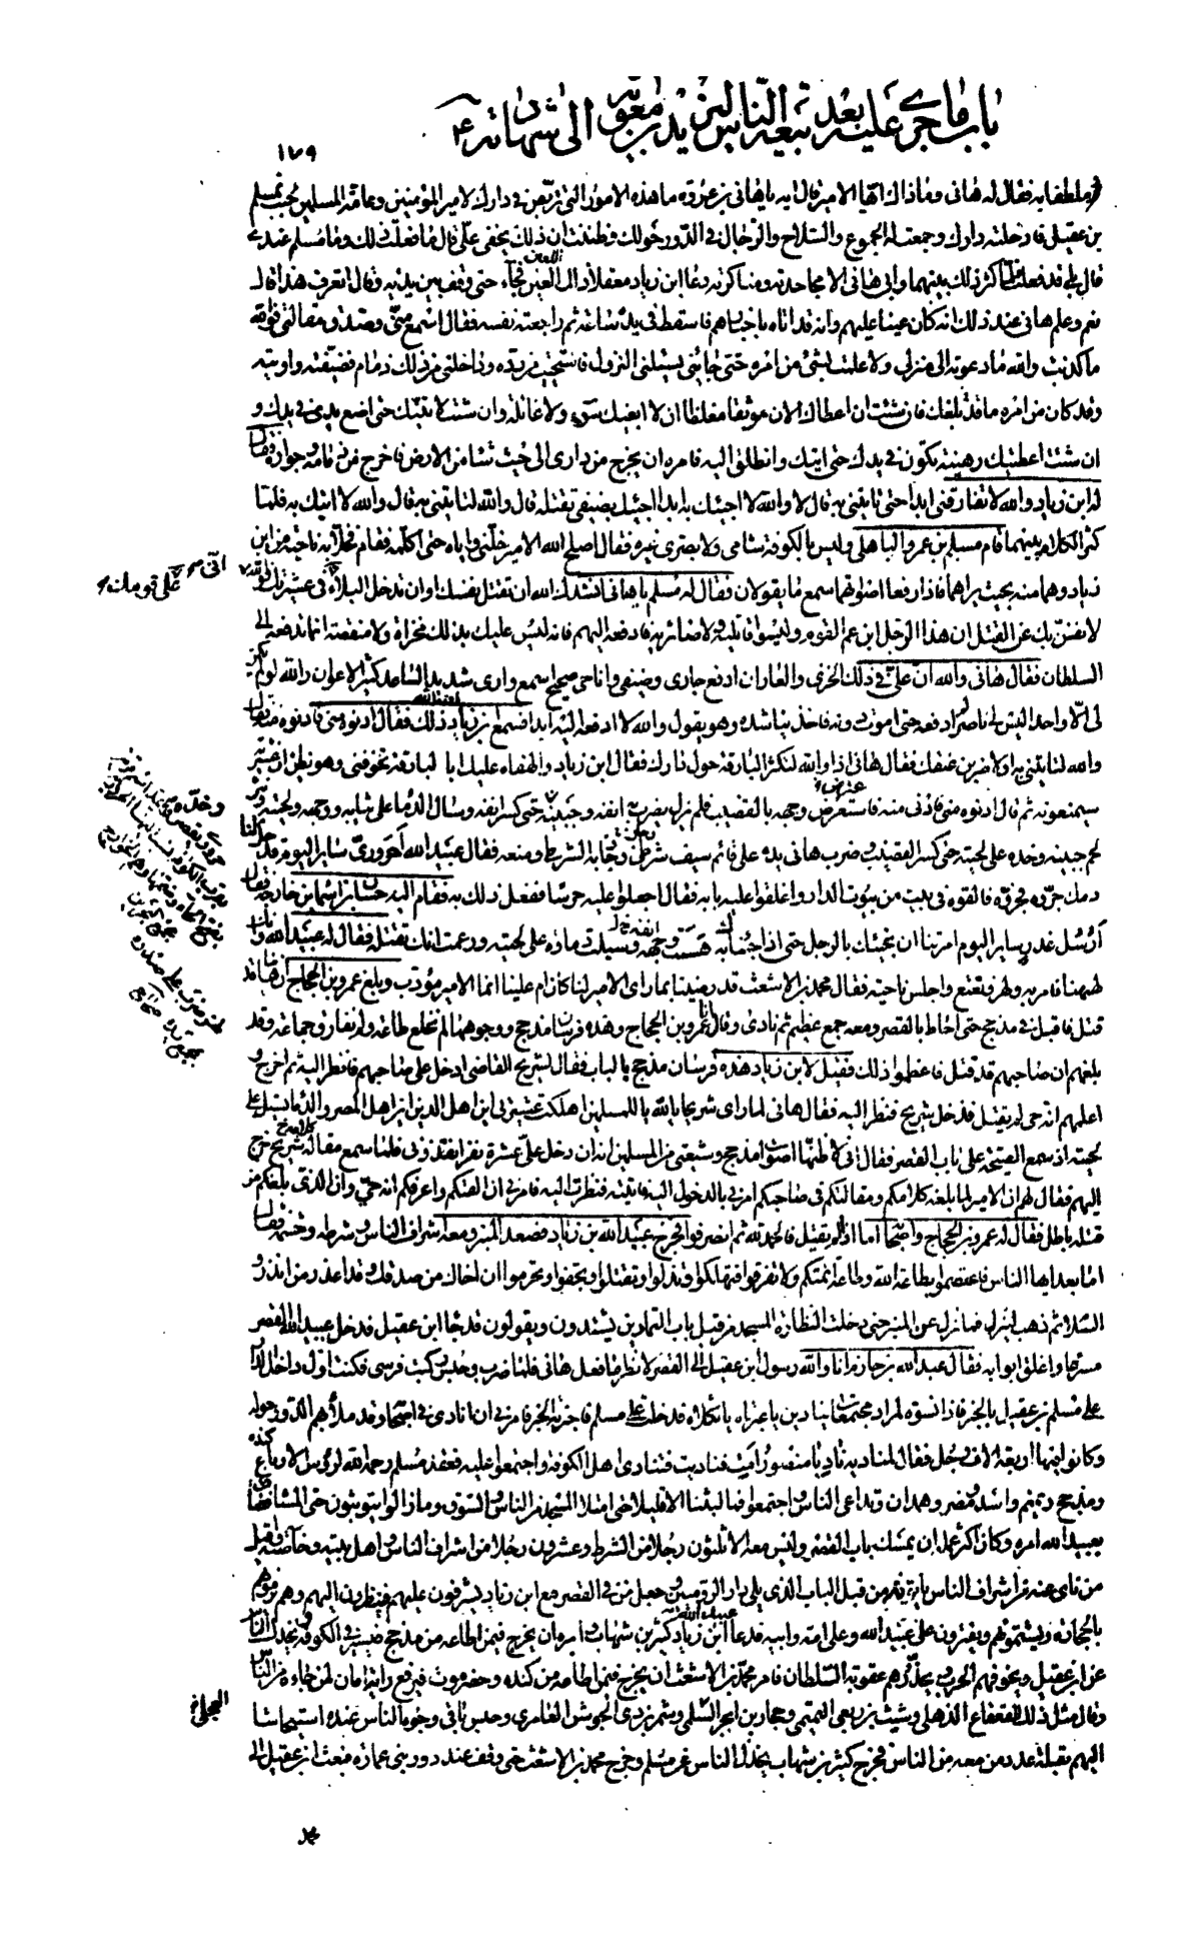 باب ما جرى عليه بعد بيعة الناس ليزيد بن معوية الى شهادته ع
١٧٩
ملطفا به فقال له هانى وما ذاك ايها الامير قال ايه يا هانى بن عروة ما هذه الامور التى تربص فى دارك لامير المؤمنين وعامة المسلمين جئت بمسلم
بن عقيل فادخلته دارك وجمعت له الجموع والسلاح والرجال فى الدور حولك وظننت ان ذلك يخفى على قال ما فعلت ذلك وما مسلم عندى
قال بلى قد فعلت فلما كثر ذلك بينهما وابى هانى الا مجاحدته ومناكرته دعا ابن زياد معقلا ذلك اللعين فجآء حتى وقف بين يديه وقال اتعرف هذا قال
نعم وعلم هانى عند ذلك انه كان عينا عليهم وانه قد اتاه باخبارهم فاسقط فى يده ساعة ثم راجعته نفسه فقال اسمع منى وصدق مقالتى فوالله
ما كذبت والله ما دعوته الى منزلى ولا علمت بشئ من امره حتى جائنى يسئلنى النزول فاستحييت من رده وداخلنى من ذلك ذمام فضيفته واويته
وقد كان من امره ما قد بلغك فان شئت ان اعطيك الان موثقا مغلظا ان لا ابغيك سوء ولا غائلة ولاتينك حتى اضع يدى فى يدك و
ان شئت اعطيتك رهينة تكون فى يدك حتى اتيك وانطلق اليه فامره ان يخرج من دارى الى حيث شاء من الارض فاخرج من ذمامه وجواره فقال
له ابن زياد والله لا تفارقنى ابدا حتى تاتينى به قال لا والله لا اجيئك به ابدا اجيئك بضيفى تقتله قال والله لتاتينى به قال والله لا اتيك به فلما
كثر الكلام بينهما قام مسلم بن عمرو الباهلى وليس بالكوفة شامى ولا بصرى غيره فقال اصلح الله الامير خلنى واياه حتى اكلمه فقام فخلا به ناحية من ابن
زياد وهما منه بحيث يراهما فاذا رفعا اصواتهما سمع ما يقولان فقال له مسلم يا هانى انشدك الله ان تقتل نفسك وان تدخل البلاء فى عشيرتك فوالله
انى
على قومك
لانفس بك عن القتل ان هذا الرجل ابن عم القوم وليسوا قاتليه ولا ضائريه فادفعه اليهم فانه ليس عليك بذلك مخزاة ولا منقصة انما تدفعه الى
السلطان فقال هانى والله ان على فى ذلك الخزى والعار ان ادفع جارى وضيفى وانا حى صحيح اسمع وارى شديد الساعد كثير الاعوان والله لو لم يكن
لى الا واحدا ليس لى ناصر لم ادفعه حتى اموت دونه فاخذ يناشده وهو يقول والله لا ادفعه اليه ابدا فسمع ابن زياد لعنه الله ذلك فقال ادنوه منى فادنوه منه فقال
والله لتاتينى به او لاضربن عنقك فقال هانى اذا والله لتكثر البارقة حول دارك فقال ابن زياد والهفاه عليك ابا لبارقة تخوفنى وهو يظن ان عشيرته
سيمنعونه ثم قال ادنوه منى فادنى منه فاستعرض وجهه بالقضيب فلم يزل يضرب به انفه وجبينه وخده حتى كسر انفه وسال الدماء على ثيابه ووجهه ولحيته ونثر
لحم جبينه وخده على لحيته حتى كسر القضيب وضرب هانى يده على قائم سيف شرطى وجاذبه الشرطى ومنعه فقال عبيد الله احرورى ساير اليوم قد حل لنا
دمك جروه فجروه فالقوه فى بيت من بيوت الدار واغلقوا عليه بابه فقال اجعلوا عليه حرسا ففعل ذلك به فقام اليه حسان بن اسماء بن خارجة فقال
أرسل غدر ساير اليوم امرتنا ان نجيئك بالرجل حتى اذا جئناك به هشمت انفه ووجهه وسيلت دمائه على لحيته وزعمت انك تقتله فقال له عبيد الله وانك
لههنا فامر به فلهز وتعتع واجلس ناحية فقال محمد بن الاشعث قد رضينا بما راى الامير لنا كان ام علينا انما الامير مؤدب وبلغ عمرو بن الحجاج ان هانيا قد
قتل فاقبل فى مذحج حتى احاط بالقصر ومعه جمع عظيم ثم نادى وقال انا عمرو بن الحجاج وهذه فرسان مذحج ووجوهها لم نخلع طاعة ولم نفارق جماعة وقد
بلغهم ان صاحبهم قد قتل فاعظموا ذلك فقيل لابن زياد هذه فرسان مذحج بالباب فقال لشريح القاضى ادخل على صاحبهم فانظر اليه ثم اخرج و
اعلمهم انه حى لم يقتل فدخل شريح فنظر اليه فقال هانى لما راى شريحا يا لله يا للمسلمين اهلكت عشيرتى اين اهل الدين اين اهل المصر والدماء تسيل على
لحيته اذ سمع الصيحة على باب القصر فقال انى لاظنها اصوات مذحج وشيعتى من المسلمين انه ان دخل على عشرة نفر انقذونى فلما سمع كلامه شريح خرج
اليهم فقال لهم ان الامير لما بلغه كلامكم ومقالتكم فى صاحبكم امرنى بالدخول اليه فاتيته فنظرت اليه فامرنى ان القاكم واعرفكم انه حى وان الذى بلغكم من
قتله باطل فقال له عمرو بن الحجاج واصحابه اما اذ لم يقتل فالحمد لله ثم انصرفوا فخرج عبيد الله بن زياد فصعد المنبر ومعه اشراف الناس وشرطه وحشمه فقال
اما بعد ايها الناس فاعتصموا بطاعة الله وطاعة ائمتكم ولا تفرقوا فتهلكوا وتذلوا وتقتلوا وتجفوا وتحرموا ان اخاك من صدقك وقد اعذر من انذر و
السلام ثم ذهب لينزل فما نزل عن المنبر حتى دخلت النظارة المسجد من قبل باب التمارين يشتدون ويقولون قد جاء ابن عقيل فدخل عبيد الله القصر
مسرعا واغلق ابوابه فقال عبد الله بن حازم انا والله رسول ابن عقيل الى القصر لانظر ما فعل هانى فلما ضرب وحبس ركبت فرسى فكنت اول داخل الدار
على مسلم بن عقيل بالخبر فاذا نسوة لمراد مجتمعات ينادين يا عبرتاه يا ثكلاه فدخلت على مسلم فاخبرته الخبر فامرنى ان انادى فى اصحابه وقد ملأ بهم الدور حوله
وكانوا فيها اربعة الاف رجل فقال لمناديه ناد يا منصور امت فناديت فتنادى اهل الكوفة واجتمعوا عليه فعقد مسلم رحمه الله لرؤس الارباع كندة
ومذحج وتميم واسد ومضر وهمدان وتداعى الناس واجتمعوا فما لبثنا الا قليلا حتى امتلا المسجد من الناس والسوق وما زالوا يتوثبون حتى المساء فضاق
بعبيد الله امره وكان اكثر عمله ان يمسك باب القصر وليس معه الا ثلثون رجلا من الشرط وعشرون رجلا من اشراف الناس واهل بيته وخاصته واقبل
من ناى عنه من اشراف الناس ياتونه من قبل الباب الذى يلى دار الروميين وجعل من فى القصر مع ابن زياد يشرفون عليهم فينظرون اليهم وهم يرمونهم
بالحجارة ويشتمونهم ويفترون على عبيد الله وعلى امه وابيه فدعا ابن زياد كثير بن شهاب وامره ان يخرج فيمن اطاعه من مذحج فيسير فى الكوفة ويخذل الناس
عن ابن عقيل ويخوفهم الحرب ويحذرهم عقوبة السلطان فامر محمد بن الاشعث ان يخرج فيمن اطاعه من كندة وحضرموت فيرفع راية امان لمن جاءه من الناس
وقال مثل ذلك للقعقاع الذهلى وشبث بن ربعى التميمى وحجار بن ابجر السلمى وشمر بن ذى الجوشن العامرى وحبس باقى وجوه الناس عنده استيحاشا
العجلى
اليهم لقلة عدد من معه من الناس فخرج كثير بن شهاب يخذل الناس عن مسلم وخرج محمد بن الاشعث حتى وقف عند دور بنى عمارة فبعث ابن عقيل الى
محمد